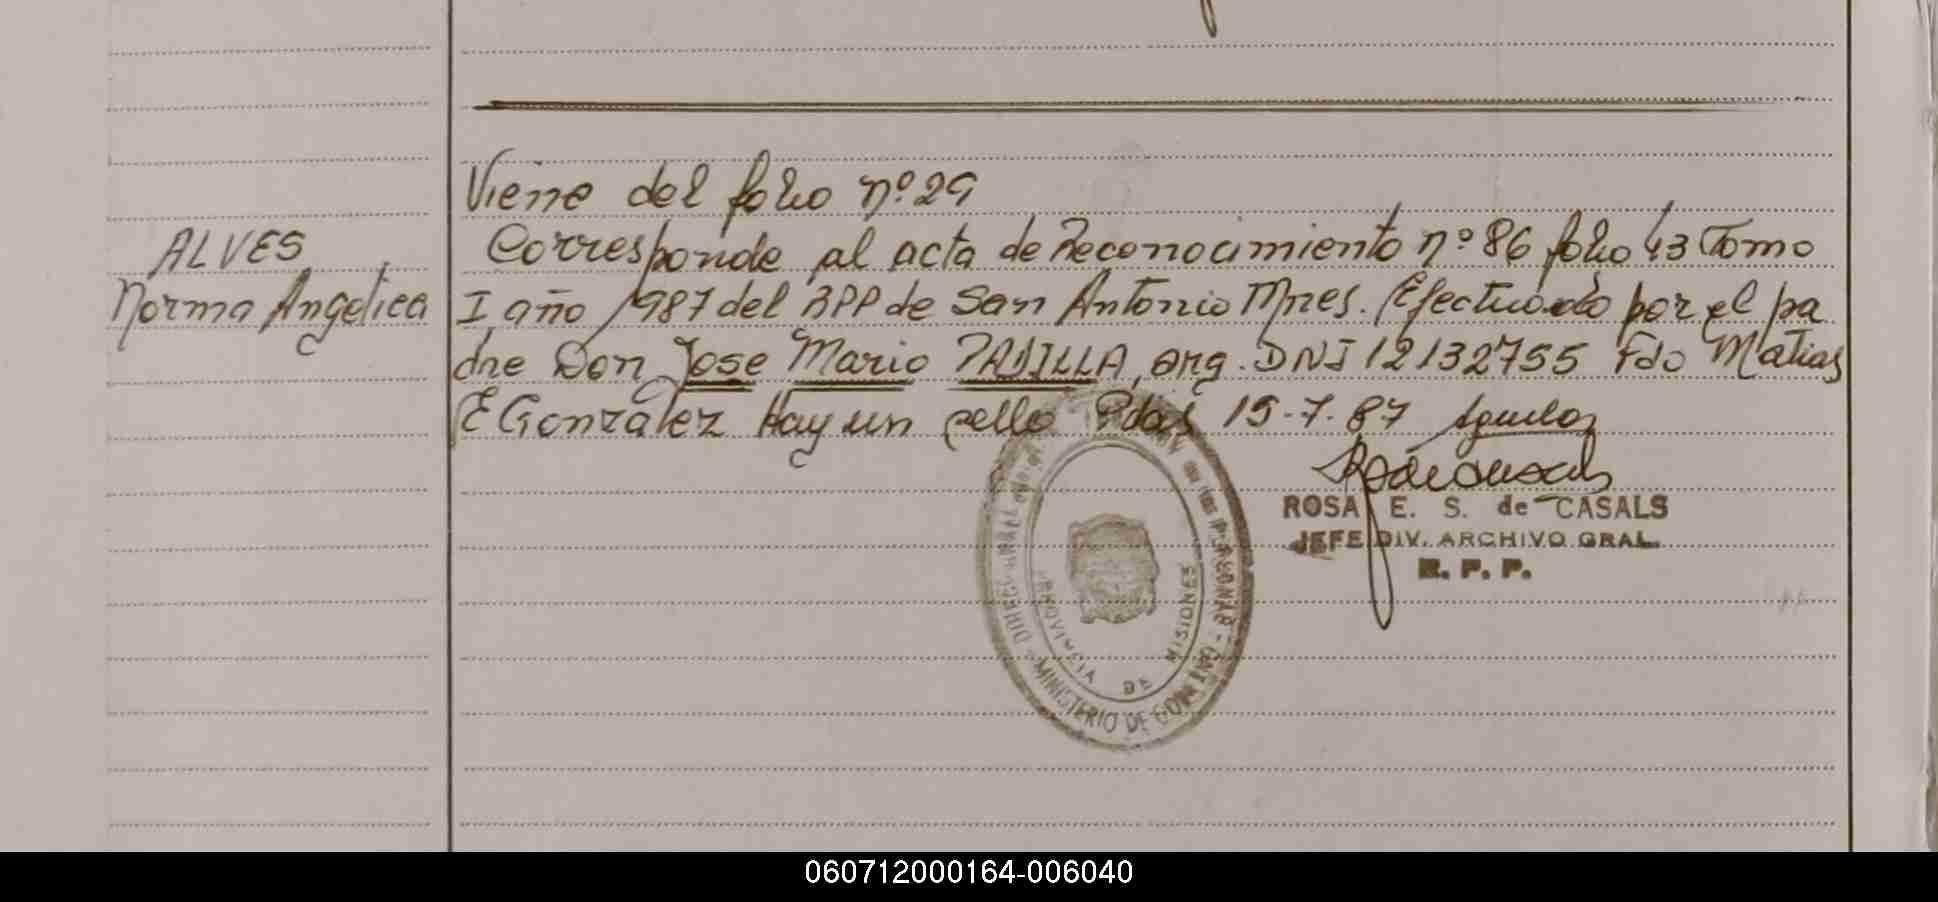 Viene del folio nº 29
ALVES
Norma Angelica
Corresponde al acta de Reconocimiento nº 86 folio 43 Tomo
I año 1987 del RPP de San Antonio Mnes. Efectuado por el pa
dre Don Jose Mario PADILLA, arg. DNI 12132755 Fdo Matias
E Gonzalez Hay un sello Pdas 15-7-87
ROSA E. S. de CASALS
JEFE DIV. ARCHIVO GRAL.
R. P. P.
PROVINCIA DE MISIONES
DE LAS PERSONAS - MINISTERIO DE GOBIERNO
060712000164-006040